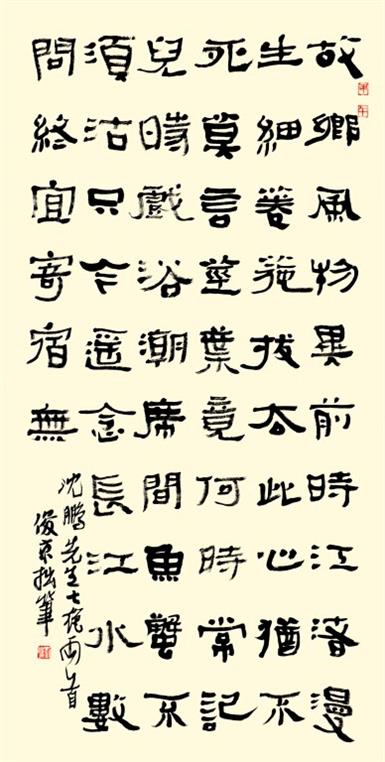 故鄉風物異前時江渚漫
生細卷葹拔去此心猶不
死莫言莖葉竟何時常記
兒時戲浴潮席間魚蟹不
須沽只今遙念長江水數
問終宜寄宿無
沈鵬先生七絕兩首
俊京拙筆